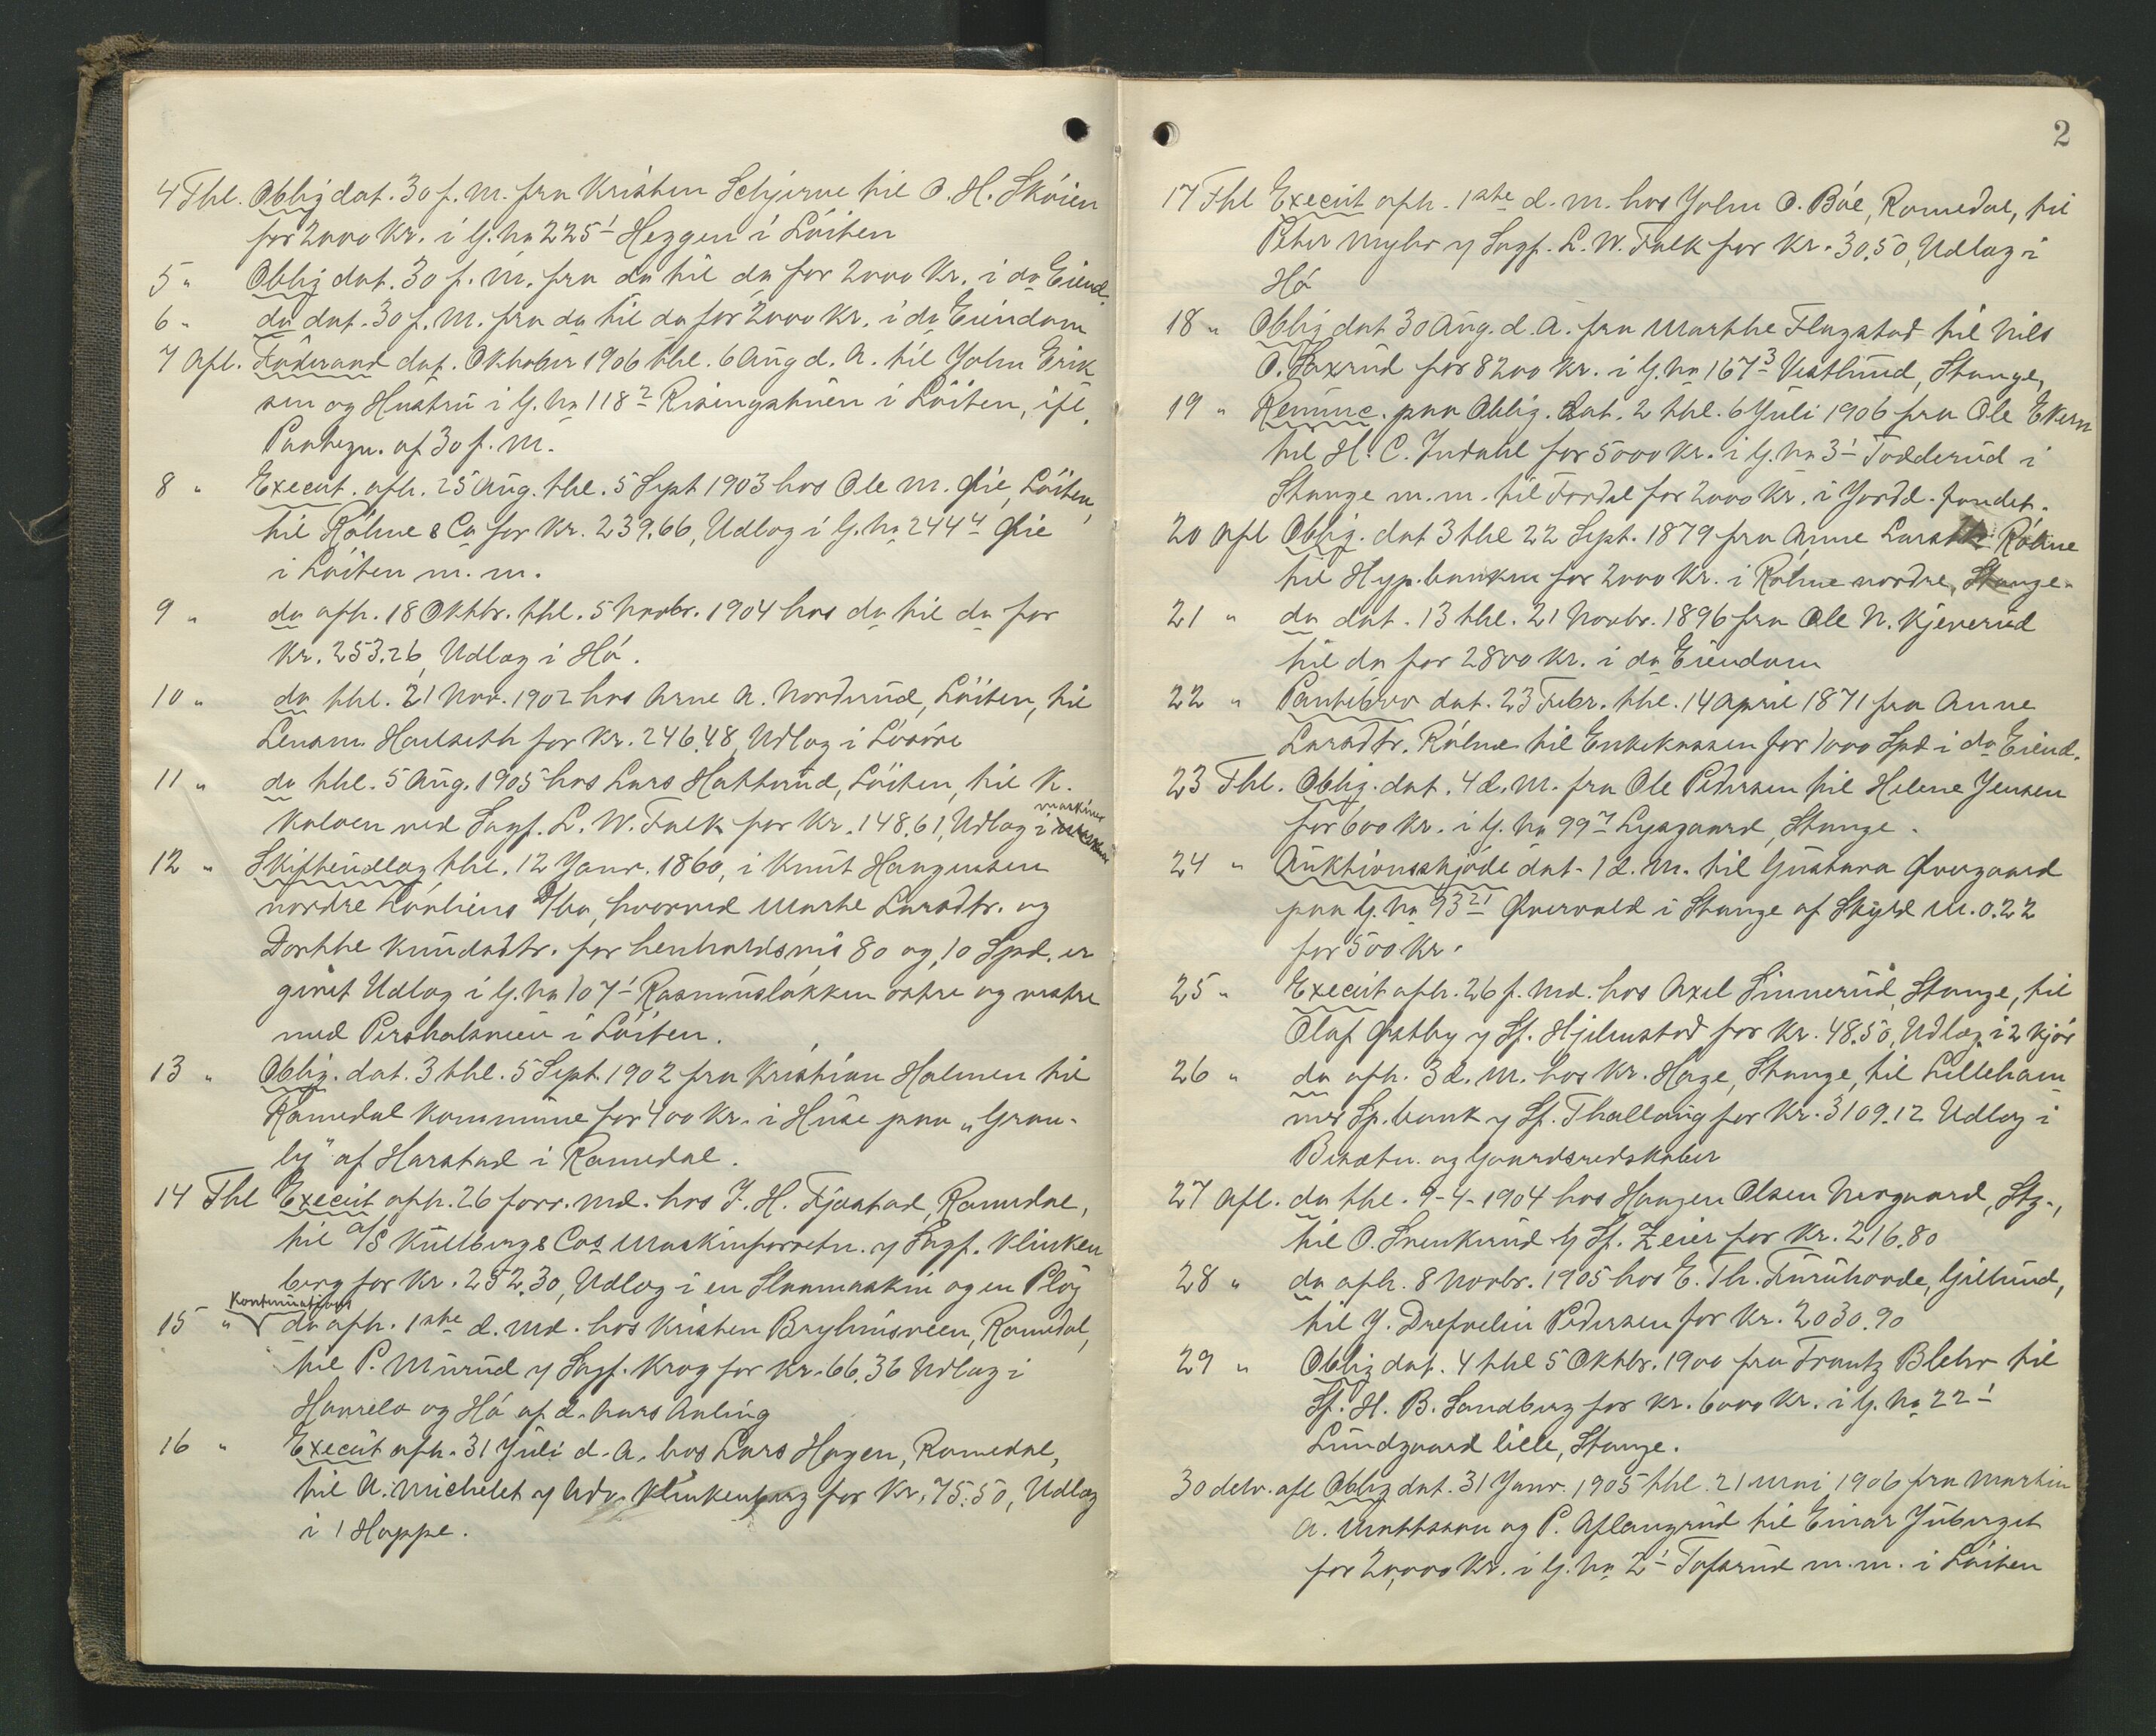 4 Thl. Oblig dat. 30 f. M. fra Kristen Schjerve til O. H. Skøien
for 2000 Kr. i G. No 225¹ Heggen i Löiten
5 " Oblig dat. 30 f. M. fra do til do for 2000 Kr. i do Eiend.
6 " do dat. 30 f. M. fra do til do for 2000 Kr. i do Eiendom
7 Afl. Föderaad dat. Oktober 1906 thl. 6 Aug d. A. til John Erik
sen og Hustru i G. No 118² Risingstuen i Löiten, ifl.
Panteg. af 30 f. M.
8 " Execut. afh. 25 Aug. thl. 5 Sept 1903 hos Ole M. Øie, Löiten,
til Röhne & Co for Kr. 239.66, Udlæg i G. No 244⁴ Øie
i Löiten m. m.
9 " do afh. 18 Oktbr. thl. 5 Novbr. 1904 hos do til do for
Kr. 253.26, Udlæg i Hö.
10 " do thl. 21 Nov. 1902 hos Arne A. Nordrud, Löiten, til
Lensm. Hailseth for Kr. 246.48, Udlæg i Lösöre
11 " do thl. 5 Aug. 1905 hos Lars Hattrud, Löiten, til K.
maskiner
Kolven ved Sagf. L. W. Falk for Kr. 148.61, Udlæg i
12 " Skifteudlæg thl. 12 Janr. 1860, i Knut Haagensen
nordre Lönliens D/bo, hvorved Marte Larsdtr. og
Dorthe Knudsdtr. for henholdsvis 80 og 10 Spd. er
givet Udlæg i G. No 107¹ Rasmuslökken östre og vestre
med Pershalsveen i Löiten.
13 " Oblig. dat. 3 thl. 5 Sept. 1902 fra Kristian Holmen til
Romedal Kommune for 400 Kr. i Huse paa „Gran-
ly" af Harstad i Romedal.
14 Thl Execut afh. 26 forr. Md. hos J. H. Fjæstad, Romedal,
til A/S Kullberg & Cos Maskinforretn. v Sagf. Klinken
berg for Kr. 252.30, Udlæg i en Slaamaskin og en Plög
Kontinuations
15 " do afh. 1ste d. Md. hos Kristen Brylinsveen, Romedal,
til P. Mürud v Sagf. Krog for Kr. 66.36 Udlæg i
Havrelo og Hö af d. Aars Avling
16 " Execut afh. 31 Juli d. A. hos Lars Hagen, Romedal,
til A. Michelet v Adv. Klinkenberg for Kr. 75.50, Udlæg
i 1 Hoppe.
2
17 Thl Execut afh. 1ste d. M. hos John O. Böe, Romedal, til
Peter Myhr v Sagf. L. W. Falk for Kr. 30.50, Udlæg i
Hö
18 " Oblig dat 30 Aug. d. A. fra Marthe Flagstad til Nils
O. Saxrud for 8200 Kr. i G. No 167³ Vestlund, Stange,
19 " Renunc. paa Oblig. dat. 2 thl. 6 Juli 1906 fra Ole Ekern
til H. C. Indahl for 5000 Kr. i G. No 3¹ Todderud i
Stange m. m. til Fordel for 2000 Kr. i Jordd. fondet.
20 Afl Oblig. dat 3 thl 22 Sept. 1879 fra Anne Larsdtr Röhne
til Hyp. banken for 2000 Kr. i Röhne nordre, Stange.
21 " do dat. 13 thl. 21 Novbr. 1896 fra Ole N. Kjeverud
til do for 2800 Kr. i do Eiendom
22 " Pantebrev dat. 23 Febr. thl. 14 April 1871 fra Anne
Larsdtr. Röhne til Enkekassen for 1000 Spd i do Eiend.
23 Thl. Oblig. dat. 4 d. M. fra Ole Pedersen til Helene Jensen
for 600 Kr. i G. No 99⁷ Lysgaard, Stange.
24 " Auktionsskjöde dat. 1 d. M. til Gustava Øvergaard
paa G. No 93²¹ Øvervold i Stange af Skyld M. 0.22
for 500 Kr.
25 " Execut afh. 26 f. Md. hos Axel Sinnerud, Stange, til
Olaf Østby v Sf. Hjelmstad for Kr. 48.50, Udlæg i 2 Kjör
26 " do afh. 3 d. M. hos Kr. Hoge, Stange, til Lilleham
mer Sp. bank v Sf. Thallaug for Kr. 3109.12 Udlæg i
Besætn. og Gaardsredskaber
27 Afl. do thl. 9-4-1904 hos Haagen Olsen Nergaard, Stg.,
til O. Svenkerud v Sf. Zeier for Kr. 216.80
28 " do afh. 8 Novbr. 1905 hos E. Th. Furuhovde, Gillund,
til J. Drefvelin Pedersen for Kr. 2030.90
29 " Oblig dat. 4 thl 5 Oktbr. 1900 fra Frantz Blehr til
Sf. H. B. Sandberg for Kr. 6000 Kr. i G. No 22¹
Lundgaard lille, Stange.
30 delv. afl Oblig dat. 31 Janr. 1905 thl. 21 Mai 1906 fra Martin
A. Mattsson og P. Aflangrud til Einar Juberget
for 20,000 Kr. i G. No 2¹ Tofsrud m. m. i Löiten